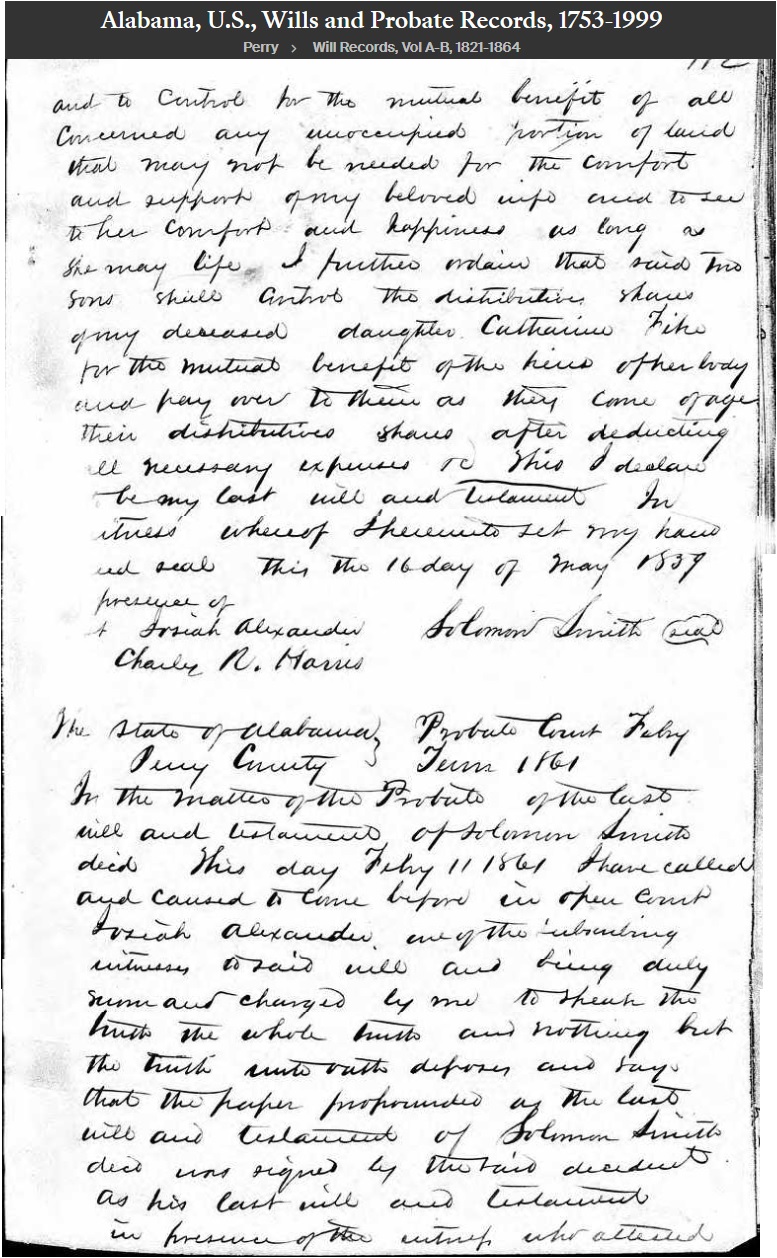 Alabama, U.S., Wills and Probate Records, 1753-1999
Perry > Will Records, Vol A-B, 1821-1864
and to Control for the mutual benefit of all
Concerned any unoccupied portion of land
that may not be needed for the comfort
and support of my beloved wife and to see
to her Comfort and happiness as long as
she may life I further ordain that said two
sons shall Control the distributive share
of my deceased daughter Catharine Fike
for the mutual benefit of the heirs of her body
and pay over to them as they come of age
their distributives shares after deducting
all necessary expenses This I declare
be my last will and testament In
itness whereof I hereunto set my hand
nd seal this the 16 day of May 1839
presence of
t Josiah Alexander Solomon Smith (seal)
Charley R. Harris
The State of Alabama } Probate Court Feby
Perry County } Term 1861
In the Matter of the Probate of the last
will and testament of Solomon Smith
decd This day Feby 11 1861 I have called
and caused to Come before in open Court
Josiah Alexander one of the subscribing
witnesses to said will and being duly
sworn and charged by me to speak the
truth the whole truth and nothing but
the truth unto oath deposes and says
that the paper propounded as the last
will and testament of Solomon Smith
decd was signed by the said decedent
as his last will and testament
in presence of the witness who attested